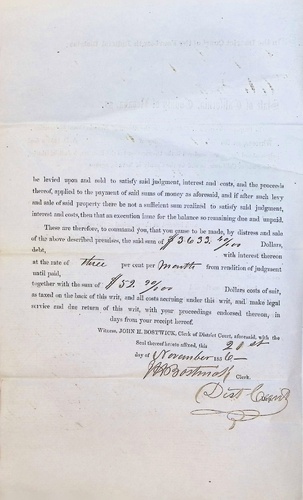 be levied upon and sold to satisfy said judgment, interest and costs, and the proceeds
thereof, applied to the payment of said sums of money as aforesaid, and if after such levy
and sale of said property there be not a sufficient sum realized to satisfy said judgment,
interest and costs, then that an execution issue for the balance so remaining due and unpaid.
These are therefore, to command you, that you cause to be made, by distress and sale
of the above described premises, the said sum of $3633 Dollars,
debt, with interest thereon
at the rate of three per cent per Month from rendition of judgment
until paid,
together with the sum of $52 Dollars costs of suit,
as taxed on the back of this writ, and all costs accruing under this writ, and make legal
service and due return of this writ, with your proceedings endorsed thereon, in
days from your receipt hereof.
Witness, JOHN H. BOSTWICK, Clerk of District Court, aforesaid, with the
Seal thereof hereto affixed, this 21st
day of November 1856
Clerk.
Dist Court